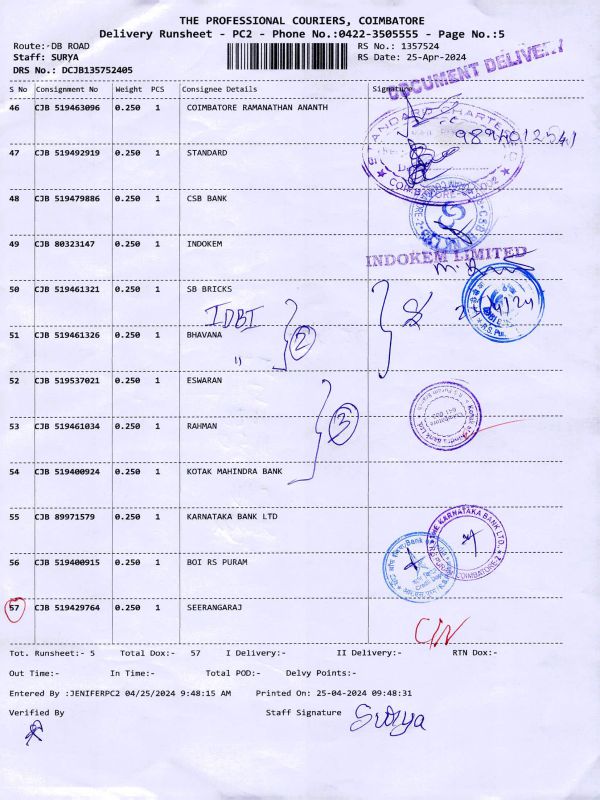 THE PROFESSIONAL COURIERS, COIMBATORE
Delivery Runsheet - PC2 - Phone No.:0422-3505555 - Page No.:5
Route:-DB ROAD
RS No.: 1357524
Staff: SURYA
RS Date: 25-Apr-2024
DRS No.: DCJB135752405
DOCUMENT DELIVERY
S No Consignment No Weight PCS Consignee Details Signature
46 CJB 519463096 0.250 1 COIMBATORE RAMANATHAN ANANTH
47 CJB 519492919 0.250 1 STANDARD
STANDARD CHARTERED
COIMBATORE
48 CJB 519479886 0.250 1 CSB BANK
49 CJB 80323147 0.250 1 INDOKEM
INDOKEM LIMITED
50 CJB 519461321 0.250 1 SB BRICKS
IDBI
51 CJB 519461326 0.250 1 BHAVANA
"
2
52 CJB 519537021 0.250 1 ESWARAN
3
53 CJB 519461034 0.250 1 RAHMAN
54 CJB 519400924 0.250 1 KOTAK MAHINDRA BANK
55 CJB 89971579 0.250 1 KARNATAKA BANK LTD
THE KARNATAKA BANK LTD.
COIMBATORE-2
56 CJB 519400915 0.250 1 BOI RS PURAM
57 CJB 519429764 0.250 1 SEERANGARAJ
Tot. Runsheet:- 5 Total Dox:- 57 I Delivery:- II Delivery:- RTN Dox:-
Out Time:- In Time:- Total POD:- Delvy Points:-
Entered By :JENIFERPC2 04/25/2024 9:48:15 AM Printed On: 25-04-2024 09:48:31
Verified By Staff Signature Surya